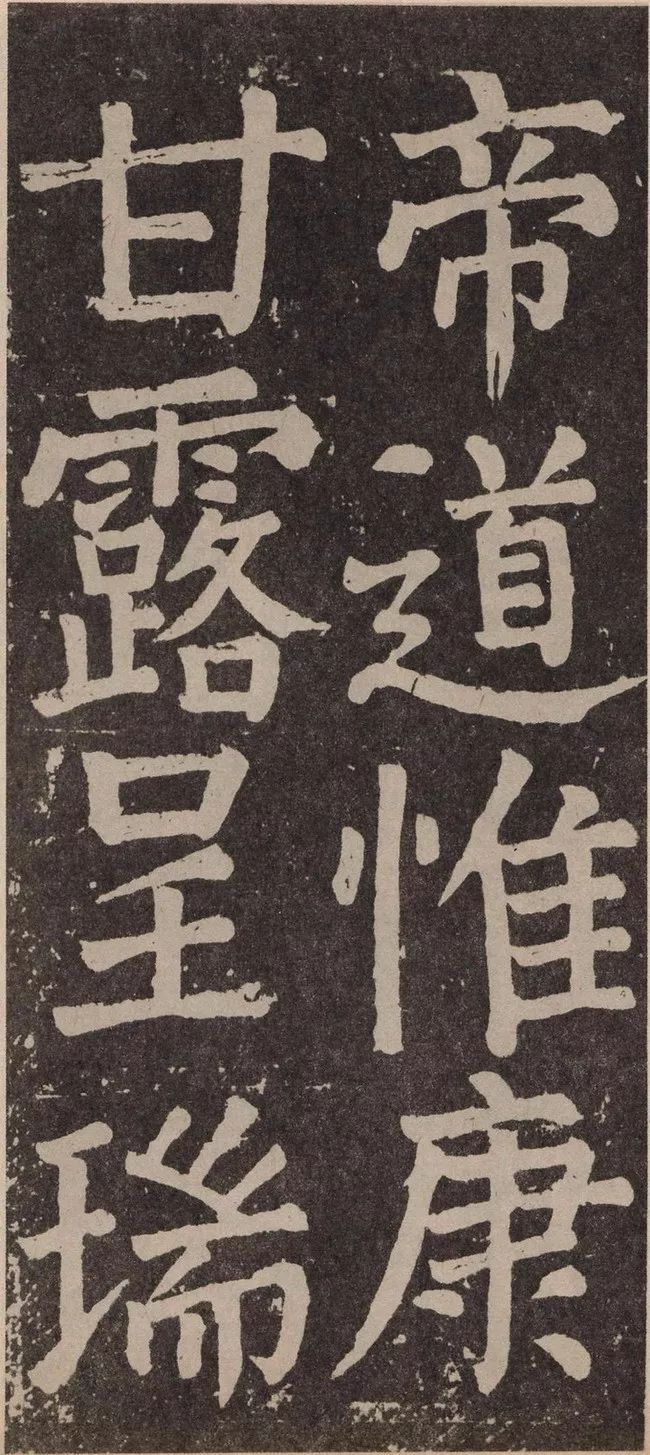 帝道惟康
甘露呈瑞